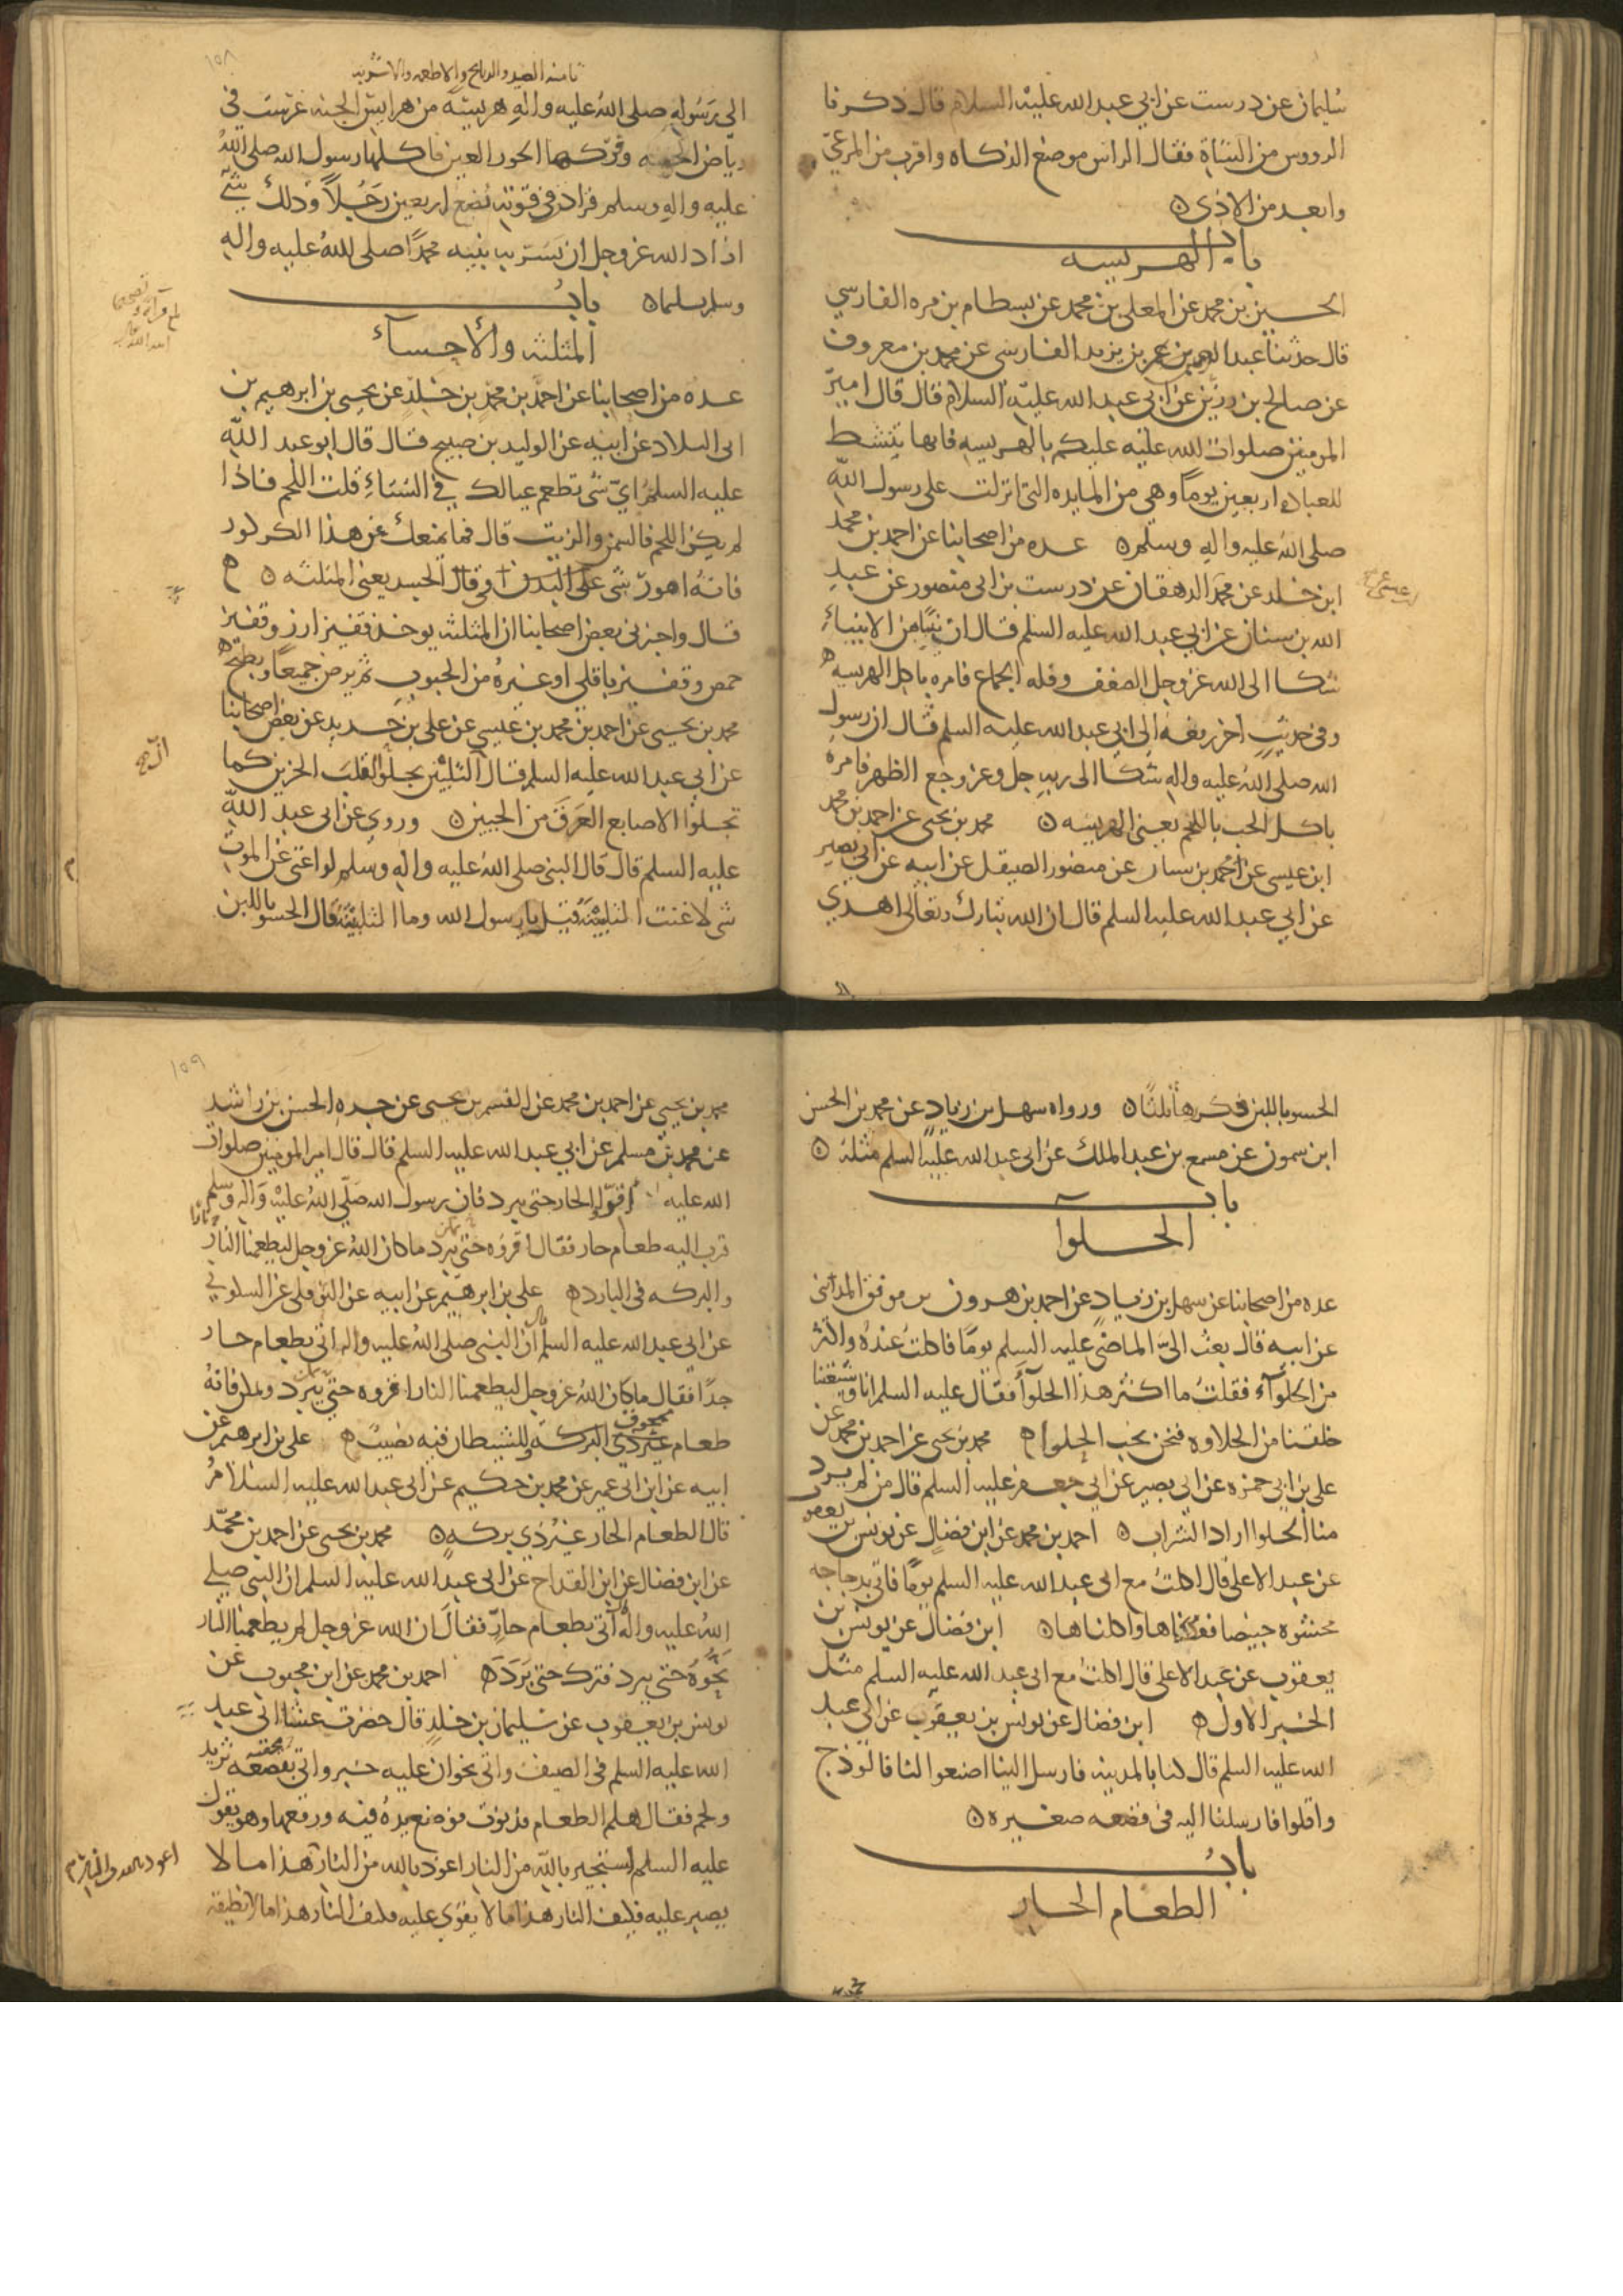 سليمان عن درست عن ابي عبد الله عليه السلام قال ذكرنا
الرووس من الشاة فقال الراس موضع الذكاه واقرب من المرعى
وابعد من الاذى
باب الهريسه
الحسين بن محمد عن المعلى بن محمد عن بسطام بن مره الفارسي
قال حدثنا عبد الرحمن بن عمر بن يزيد الفارسي عن محمد بن معروف
عن صالح بن رزين عن ابي عبد الله عليه السلام قال قال امير
المومنين صلوات الله عليه عليكم بالهريسه فانها تنشط
للعباده اربعين يوما وهي من المايده التي انزلت على رسول الله
صلى الله عليه واله وسلم عده من اصحابنا عن احمد بن محمد
ابن خلد عن محمد الدهقان عن درست بن ابي منصور عن عبد
الله بن سنان عن ابي عبد الله عليه السلم قال ان نبيا من الانبياء
شكا الى الله عز وجل الضعف وقله الجماع فامره باكل الهريسه
وفي حديث اخر رفعه الى ابي عبد الله عليه السلم قال ان رسول
الله صلى الله عليه واله شكا الى ربه جل وعز وجع الظهر فامره
باكل الحب باللحم يعني الهريسه محمد بن يحيى عن احمد بن محمد
ابن عيسى عن محمد بن سنان عن منصور الصيقل عن ابيه عن ابي بصير
عن ابي عبد الله عليه السلم قال ان الله تبارك وتعالى اهدى
١٥٨
ثامنه الصيد والذبايح والاطعمه والاشربه
الى رسوله صلى الله عليه واله هريسه من هرايس الجنه غرست في
رياض الجنه وفركها الحور العين فاكلها رسول الله صلى الله
عليه واله وسلم فزاد في قوته بضع اربعين رجلا وذلك شي
اراد الله عز وجل ان يسر به نبيه محمدا صلى الله عليه واله
وسلم تسليما باب
المثلثه والاحساء
عده من اصحابنا عن احمد بن محمد بن خلد عن يحيى بن ابرهيم بن
ابي البلاد عن ابيه عن الوليد بن صبيح قال قال ابو عبد الله
عليه السلم اي شي تطعم عيالك في الشتاء قلت اللحم فاذا
لم يكن اللحم فالسمن والزيت قال فما يمنعك عن هذا الكركور
فانه اهون شي على البدن وفي قال الجسد يعني المثلثه
قال واخبرني بعض اصحابنا ان المثلثه يوخذ قفيز ارز وقفيز
حمص وقفيز باقلى او غيره من الحبوب ثم يرض جميعا ويطبخ
محمد بن يحيى عن احمد بن محمد بن عيسى عن علي بن حديد عن بعض اصحابنا
عن ابي عبد الله عليه السلم قال التلبين يجلو القلب الحزين كما
تجلوا الاصابع العرق من الجبين وروي عن ابي عبد الله
عليه السلم قال قال النبي صلى الله عليه واله وسلم لو اغنى عن الموت
شي لاغنت التلبينه فقيل يا رسول الله وما التلبينه قال الحسو باللبن
الحسو باللبن فكررها ثلثا ورواه سهل بن زياد عن محمد بن الحسن
ابن سمون عن مسمع بن عبد الملك عن ابي عبد الله عليه السلم مثله
باب
الحلوا
عده من اصحابنا عن سهل بن زياد عن احمد بن هرون بن موفق المدايني
عن ابيه قال بعث الي الماضي عليه السلم يوما فاكلت عنده واكثر
من الحلواء فقلت ما اكثر هذا الحلواء فقال عليه السلم انا وشيعتنا
خلقنا من الحلاوه فنحن نحب الحلوا محمد بن يحيى عن احمد بن محمد عن
علي بن ابي حمزه عن ابي بصير عن ابي جعفر عليه السلم قال من لم يرد
منا الحلوا اراد الشراب احمد بن محمد عن ابن فضال عن يونس بن يعقوب
عن عبد الاعلى قال اكلت مع ابي عبد الله عليه السلم يوما فاتي بدجاجه
محشوه خبيصا ففككناها واكلناها ابن فضال عن يونس بن
يعقوب عن عبد الاعلى قال اكلت مع ابي عبد الله عليه السلم مثل
الخبر الاول ابن فضال عن يونس بن يعقوب عن ابي عبد
الله عليه السلم قال كنا بالمدينه فارسل الينا اصنعوا لنا فالوذج
واقلوا فارسلنا اليه في قصعه صغيره
باب
الطعام الحار
١٥٩
محمد بن يحيى عن احمد بن محمد عن القسم بن يحيى عن جده الحسن بن راشد
عن محمد بن مسلم عن ابي عبد الله عليه السلم قال قال امير المومنين صلوات
الله عليه اقروا الحار حتى يبرد فان رسول الله صلى الله عليه واله وسلم
قرب اليه طعام حار فقال اقروه حتى يبرد ما كان الله عز وجل ليطعمنا النار
والبركه في البارد علي بن ابرهيم عن ابيه عن النوفلي عن السكوني
عن ابي عبد الله عليه السلم قال ان النبي صلى الله عليه واله اتي بطعام حار
جدا فقال ما كان الله عز وجل ليطعمنا النار اقروه حتى يبرد ويمكن فانه
طعام ممحوق البركه وللشيطان فيه نصيب علي بن ابرهيم عن
ابيه عن ابن ابي عمير عن محمد بن حكيم عن ابي عبد الله عليه السلام
قال الطعام الحار غير ذي بركه محمد بن يحيى عن احمد بن محمد
عن ابن فضال عن ابن القداح عن ابي عبد الله عليه السلم ان النبي صلى
الله عليه واله اتي بطعام حار فقال ان الله عز وجل لم يطعمنا النار
نحوه حتى يبرد فترك حتى برد احمد بن محمد عن ابن محبوب عن
يونس بن يعقوب عن سليمان بن خلد قال حضرت عشا ابي عبد
الله عليه السلم في الصيف واتي بخوان عليه خبز واتي بقصعه ثريد
ولحم فقال هلم الى الطعام فدنوت فوضع يده فيه ورفعها وهو يقول
عليه السلم استجير بالله من النار اعوذ بالله من النار هذا ما لا
يصبر عليه فكيف النار هذا ما لا يقوى عليه فكيف النار هذا ما لا نطيقه
اعوذ بالله من النار